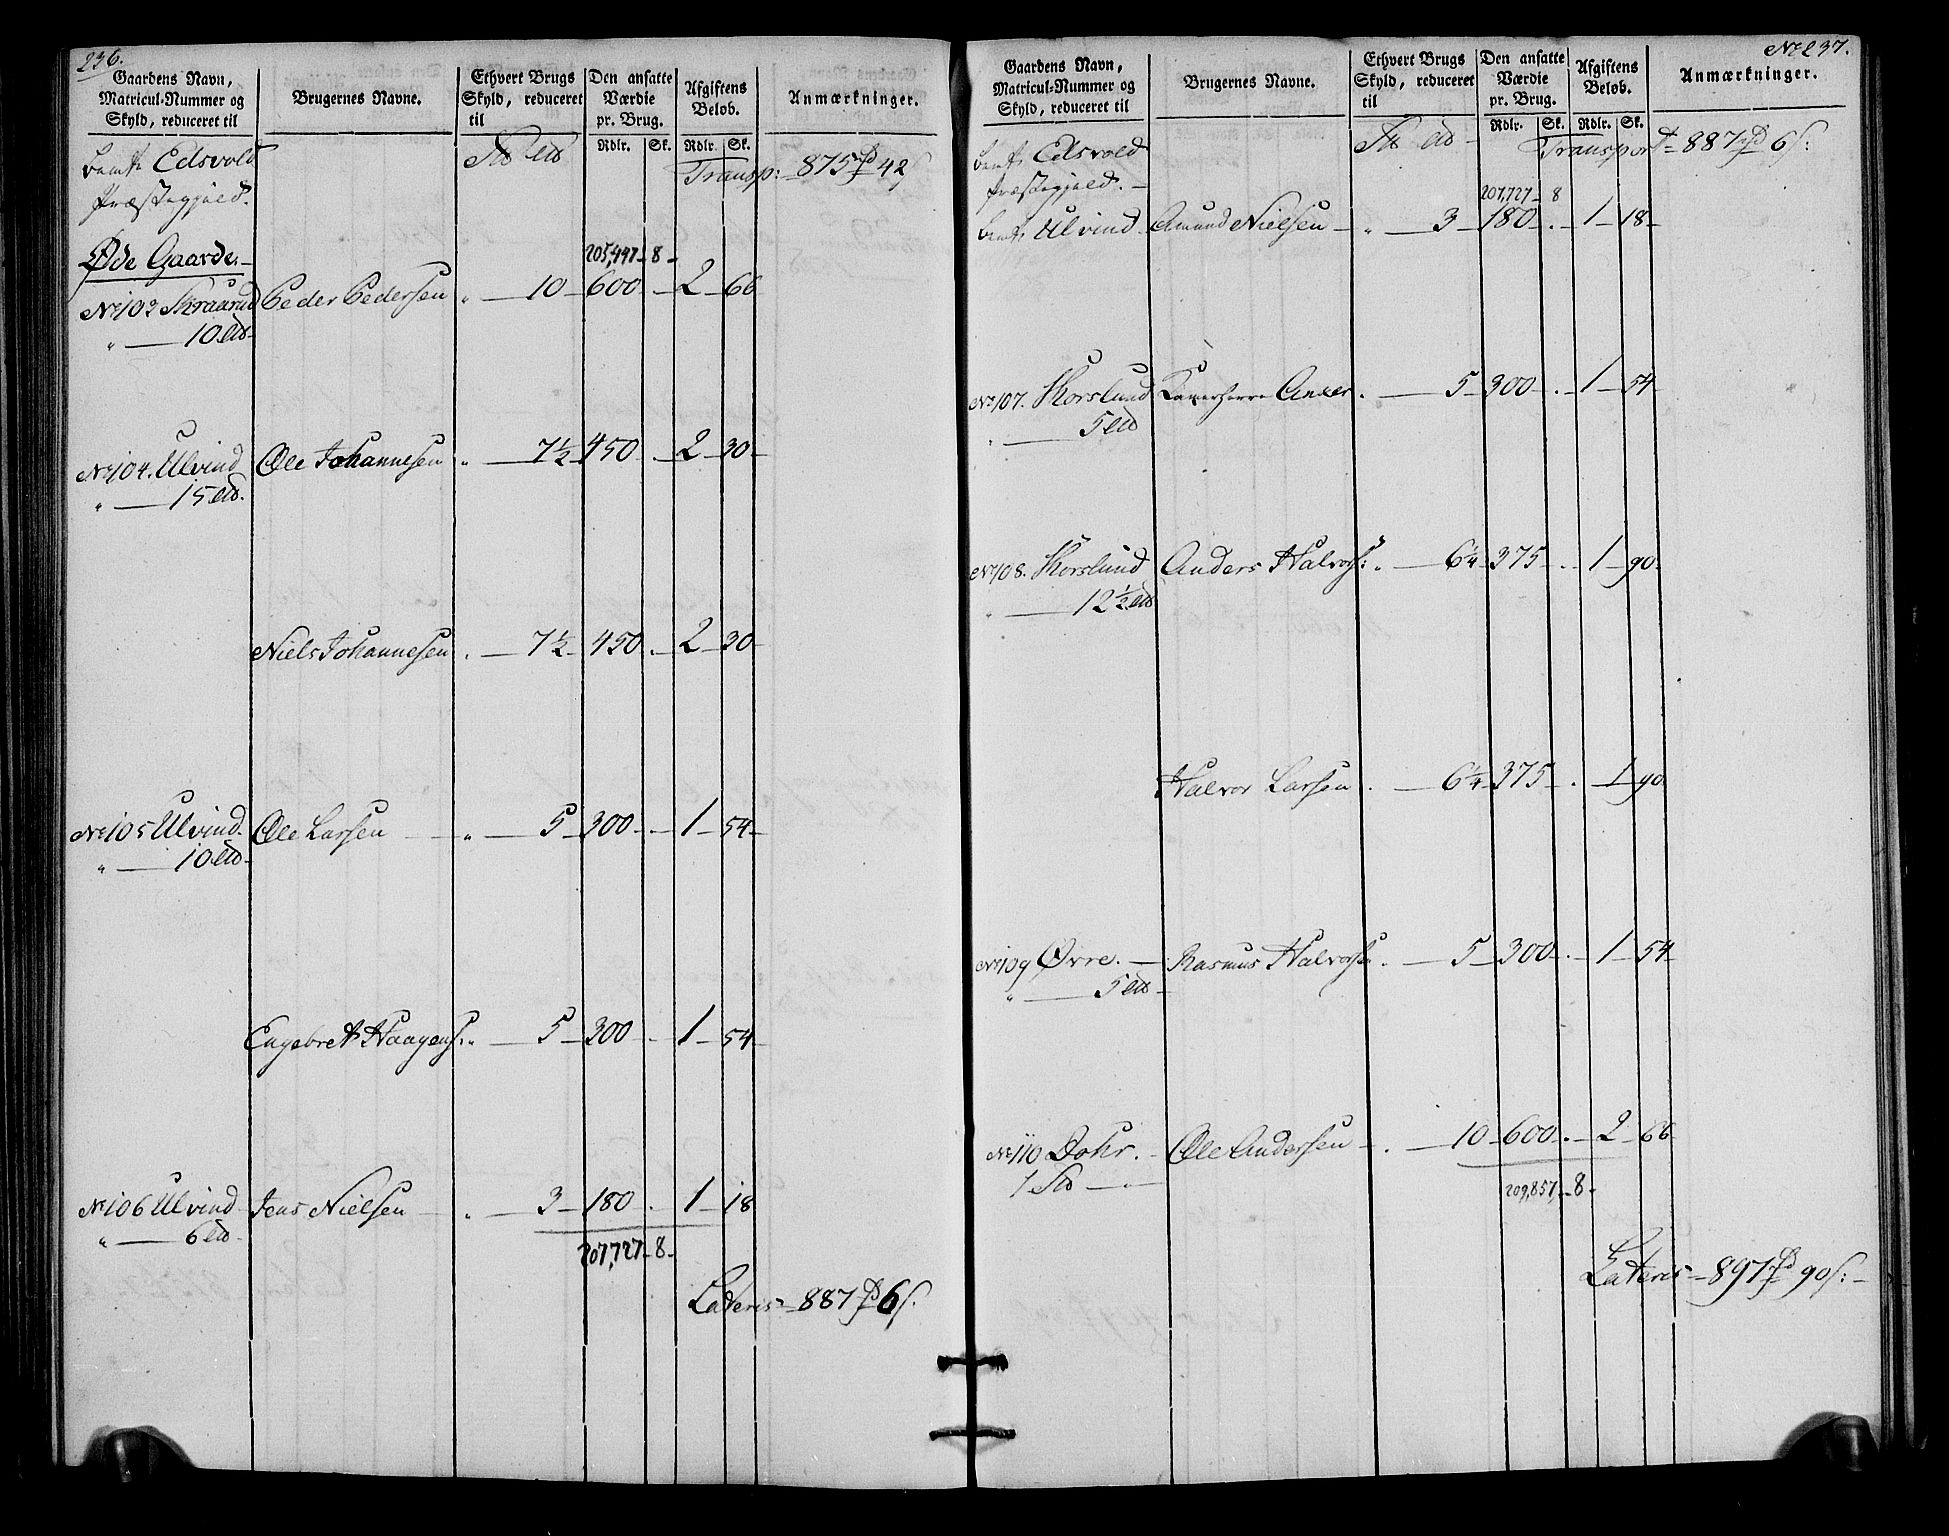 236.
Gaardens Navn, Matricul-Nummer og Skyld, reduceret til
Brugernes Navne.
Ethvert Brugs Skyld, reduceret til
Den ansatte Værdie pr. Brug.
Afgiftens Beløb.
Anmærkninger.
Rdlr. Sk. Rdlr. Sk.
Bemte Edsvold Transp: 875 42
Præstegjæld.
Øde Gaarde. 205,447 8
No 103 Skraarud Peder Pedersen " 10 600 . 2 66
" 10
No 104. Ulvind Ole Johannesen " 7½ 450 2 30
" 15
Niels Johannesen . 7½ 450 . 2 30
No 105 Ulvind Ole Larsen " 5 300 1 54
" 10
Engebret Haagens: " 5 300 1 54
No 106 Ulvind Jens Nielsen " 3 180 . 1 18
" 6
207,727 8
Lateris 887 6
No 237.
Gaardens Navn, Matricul-Nummer og Skyld, reduceret til
Brugernes Navne.
Ethvert Brugs Skyld, reduceret til
Den ansatte Værdie pr. Brug.
Afgiftens Beløb.
Anmærkninger.
Rdlr. Sk. Rdlr. Sk.
Bemte Edsvold Transport 887 6
Præstegjæld.
207,727 8
Bemte Ulvind Amund Nielsen " 3 180 . 1 18
No 107. Korslund Kamerherre Anker . 5 300 . 1 54
" 5
No 108. Korslund Anders Halvors: . 6¼ 375 . 1 90
" 12½
Halvor Larsen . 6¼ 375 . 1 90
No 109 Øvre. Rasmus Halvorsen . 5 300 . 1 54
" 5
No 110 Dohr. Ole Andersen . 10 600 . 2 66
1
209,857 8
Lateris 897 90